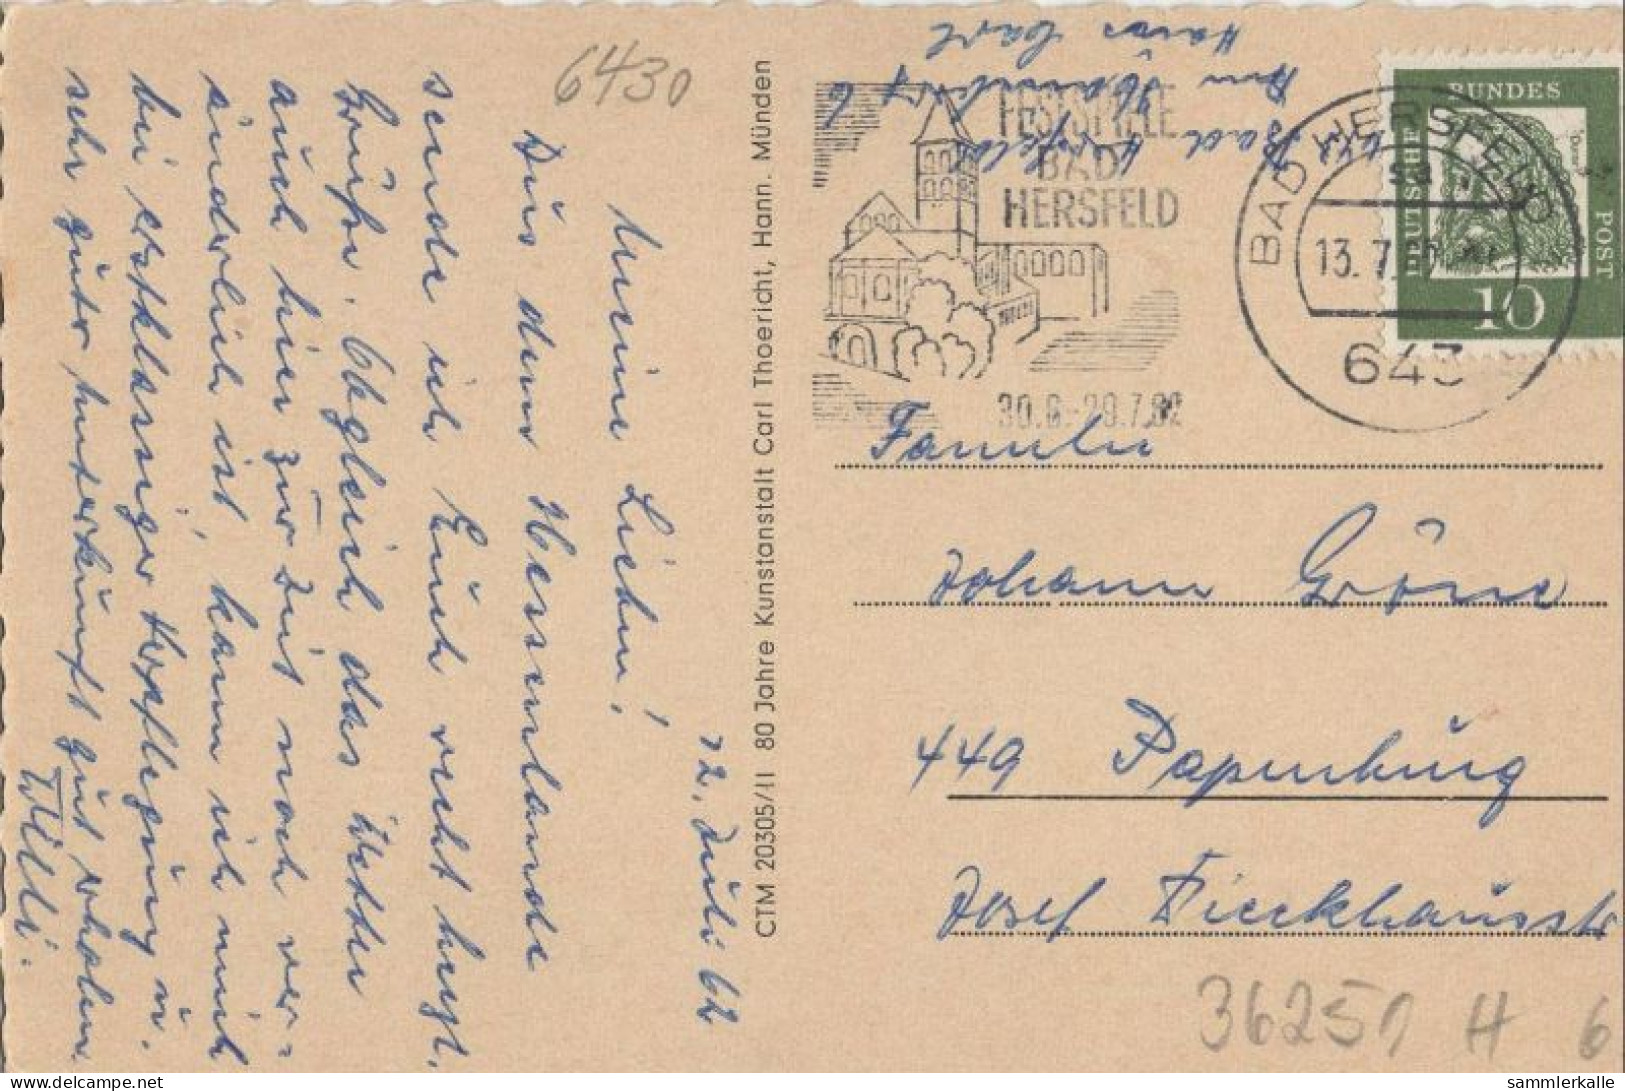 12. Juli 62
Meine Lieben!
Aus dem Hessenlande
sende ich Euch recht herzl.
Grüße. Obgleich das Wetter
auch hier zur Zeit noch ver-
änderlich ist, kann ich mich
bei erstklassiger Verpflegung u.
sehr guter Unterkunft gut erholen
Willi.
6430
CTM 20305/II 80 Jahre Kunstanstalt Carl Thoericht, Hann. Münden
643 Bad Hersfeld
Am
Haus Carl
FESTSPIELE
BAD
HERSFELD
30.6.-29.7.62
BAD HERSFELD
13.7.
643
DEUTSCHE BUNDESPOST
10
Familie
Johann Gröne
449 Papenburg
Josef Fieckhausstr
36251 H 6
sammlerkalle